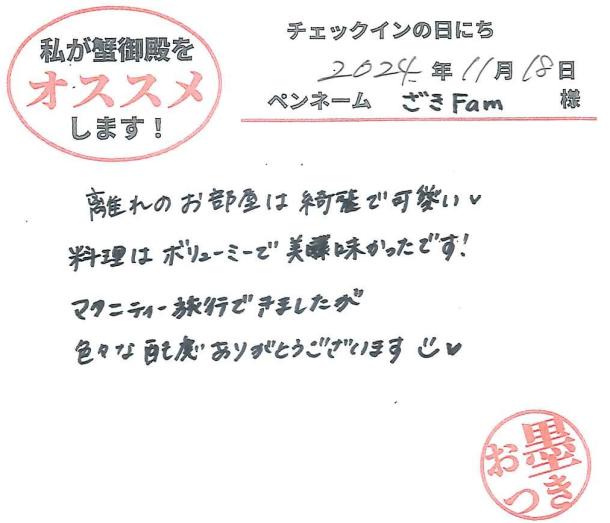 私が蟹御殿を
オススメ
します！
チェックインの日にち
2024年11月18日
ペンネーム ざきFam 様
離れのお部屋は綺麗で可愛い♥
料理はボリューミーで美味かったです!
マタニティー旅行できましたが
色々な配慮ありがとうございます☺♥
お墨
つき